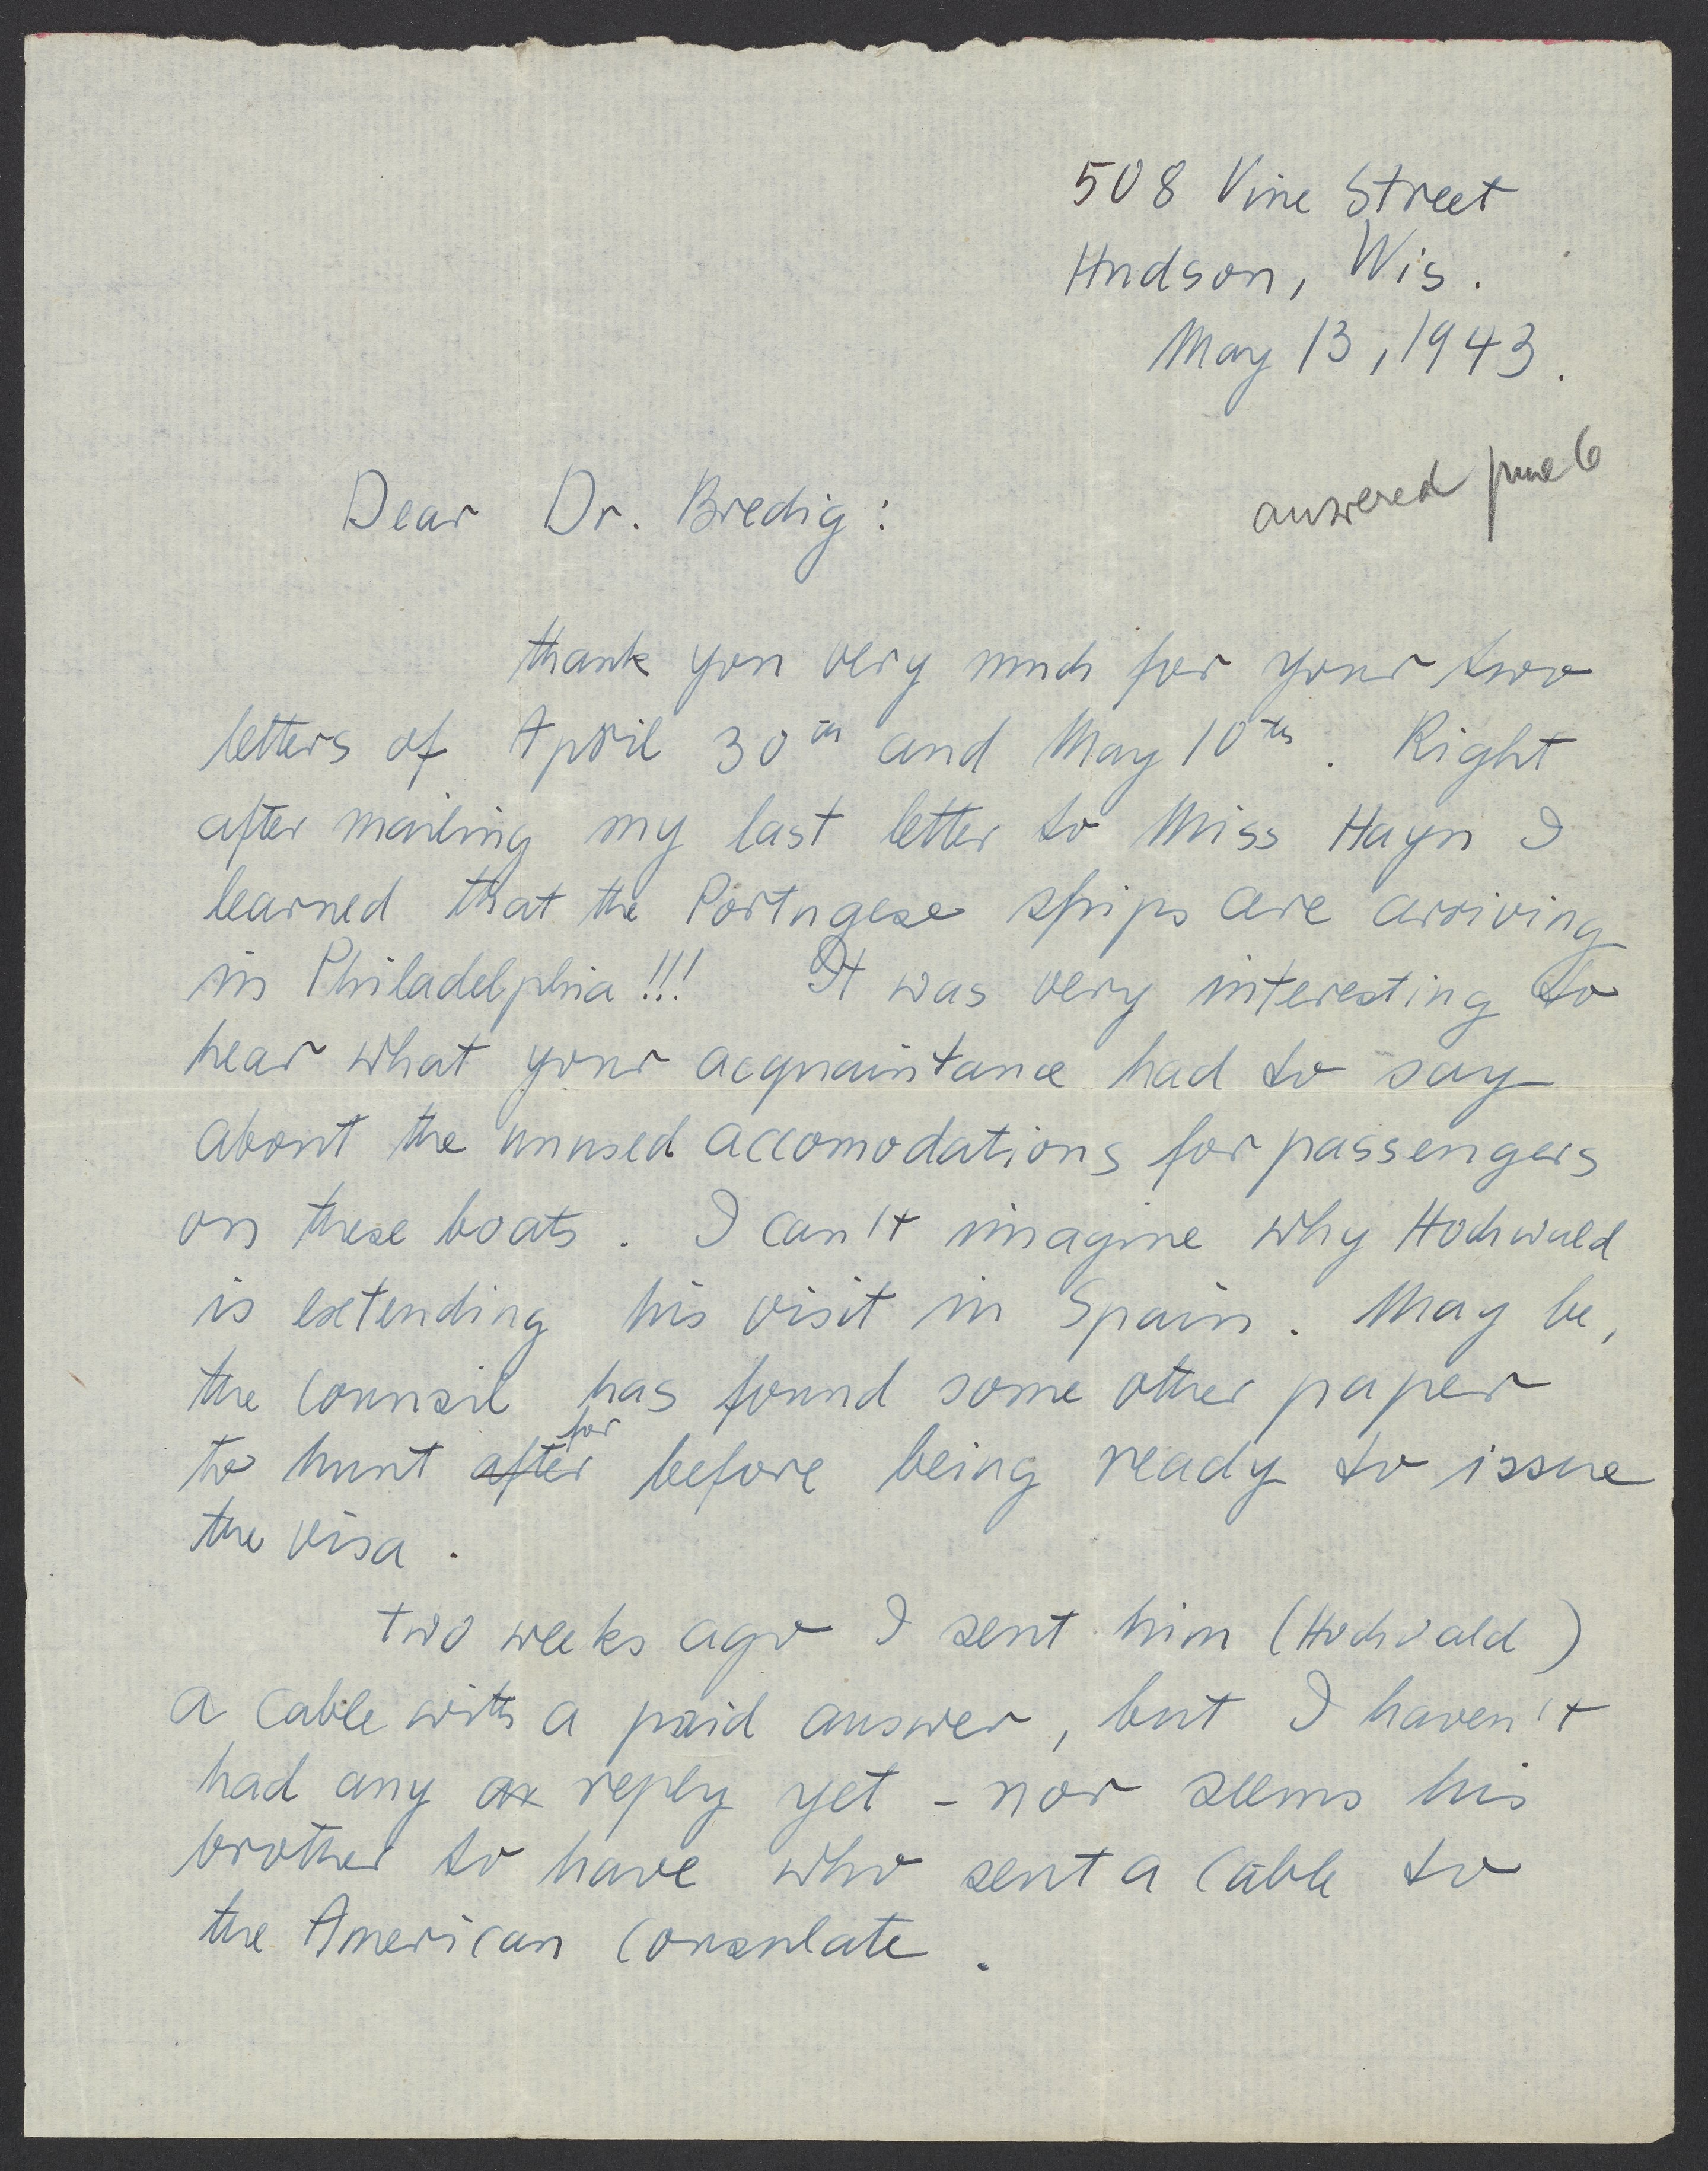 508 Vine Street
Hudson, Wis.
May 13, 1943.
answered June 6
Dear Dr. Bredig:
thank you very much for your two
letters of April 30th and May 10th. Right
after mailing my last letter to Miss Hayn I
learned that the Portugese ships are arriving
in Philadelphia!!! It was very interesting to
hear what your acquaintance had to say
about the unused accomodations for passengers
on these boats. I can't imagine why Hochwald
is extending his visit in Spain. May be,
the counsil has found some other paper
for
to hunt after before being ready to issue
the visa.
two weeks ago I sent him (Hochvald)
a cable with a paid answer, but I haven't
had any reply yet - nor seems his
brother to have who sent a cable to
the American Consulate.